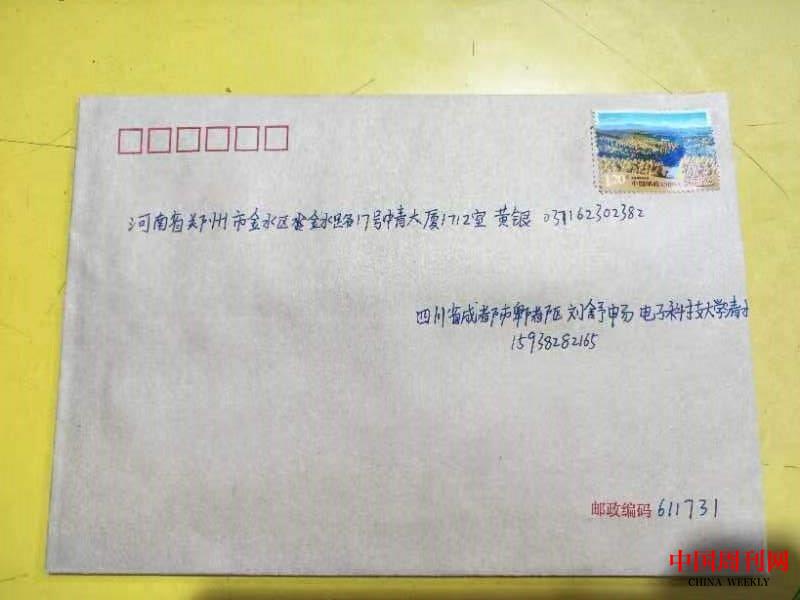 120
中国邮政 CHINA
河南省郑州市金水区金水路17号中青大厦1712室 黄银 037162302382
四川省成都市郫都区 刘舒畅 电子科技大学清水
15938282165
邮政编码 611731
中国周刊网
CHINA WEEKLY